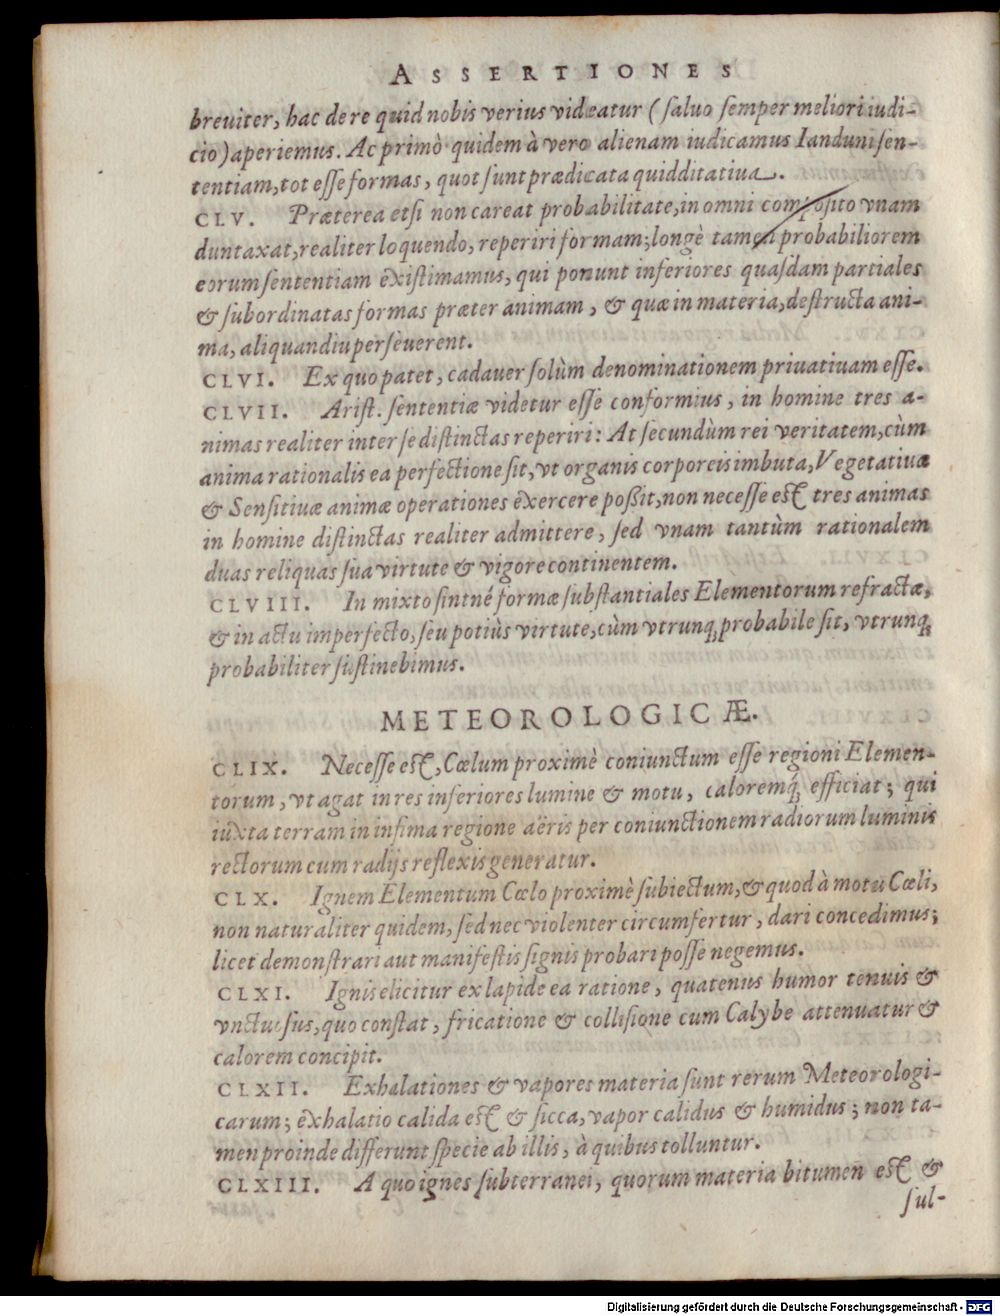 ASSERTIONES
breuiter, hac de re quid nobis verius videatur (saluo semper meliori iudi-
cio) aperiemus. Ac primò quidem à vero alienam iudicamus Ianduni sen-
tentiam, tot esse formas, quot sunt prædicata quidditatiua.
CLV. Præterea etsi non careat probabilitate, in omni composito vnam
duntaxat, realiter loquendo, reperiri formam; longè tamen probabiliorem
eorum sententiam existimamus, qui ponunt inferiores quasdam partiales
& subordinatas formas præter animam, & quæ in materia, destructa ani-
ma, aliquandiu perseuerent.
CLVI. Ex quo patet, cadauer solùm denominationem priuatiuam esse.
CLVII. Arist. sententiæ videtur esse conformius, in homine tres a-
nimas realiter inter se distinctas reperiri: At secundùm rei veritatem, cùm
anima rationalis ea perfectione sit, vt organis corporeis imbuta, Vegetatiuæ
& Sensitiuæ animæ operationes exercere poßit, non necesse est tres animas
in homine distinctas realiter admittere, sed vnam tantùm rationalem
duas reliquas sua virtute & vigore continentem.
CLVIII. In mixto sintné formæ substantiales Elementorum refractæ,
& in actu imperfecto, seu potiùs virtute, cùm vtrunq; probabile sit, vtrunq;
probabiliter sustinebimus.
METEOROLOGICÆ.
CLIX. Necesse est, Cœlum proximè coniunctum esse regioni Elemen-
torum, vt agat in res inferiores lumine & motu, caloremq́; efficiat; qui
iuxta terram in infima regione aëris per coniunctionem radiorum luminis
rectorum cum radijs reflexis generatur.
CLX. Ignem Elementum Cœlo proximè subiectum, & quod à motu Cœli,
non naturaliter quidem, sed nec violenter circumfertur, dari concedimus;
licet demonstrari aut manifestis signis probari posse negemus.
CLXI. Ignis elicitur ex lapide ea ratione, quatenus humor tenuis &
vnctuosus, quo constat, fricatione & collisione cum Calybe attenuatur &
calorem concipit.
CLXII. Exhalationes & vapores materia sunt rerum Meteorologi-
carum; exhalatio calida est & sicca, vapor calidus & humidus; non ta-
men proinde differunt specie ab illis, à quibus tolluntur.
CLXIII. A quo ignes subterranei, quorum materia bitumen est &
sul-
Digitalisierung gefördert durch die Deutsche Forschungsgemeinschaft - DFG